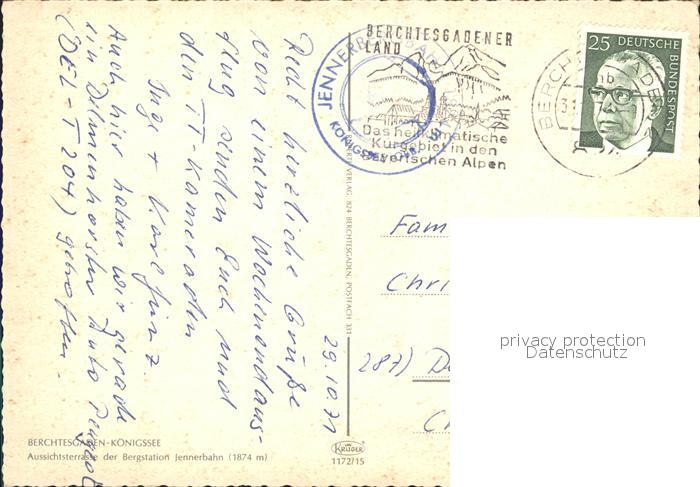 BERCHTESGADENER
LAND
Das heilklimatische
Kurgebiet in den
Bayerischen Alpen
JENNERBAHN
KÖNIGSSEE
25 DEUTSCHE
BUNDESPOST
29.10.71
Recht herzliche Grüße
von einem Wochenendaus-
flug senden Euch und
den TT-Kameraden
Inge + Karl-Heinz
Auch hier haben wir gerade
ein Delmenhorster Auto Peugeot
(DEL-T 204) getroffen.
Fam
Chri
287) D
privacy protection
Datenschutz
BERCHTESGADEN-KÖNIGSSEE
Aussichtsterrasse der Bergstation Jennerbahn (1874 m)
KRÜGER
1172/15
VERLAG, 824 BERCHTESGADEN, POSTFACH 331